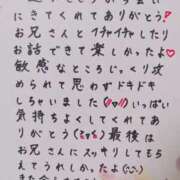 にきてくれてありがとう!
お兄さんとイチャイチャしたり
お話できて楽しかったよ♥
敏感なところじっくり攻
められて思わずドキドキ
しちゃいました(//▽//)いっぱい
気持ちよくしてくれてあ
りがとう(≧з≦)最後は
お兄さんにスッキリしてもら
えてうれしかったよ(^^)